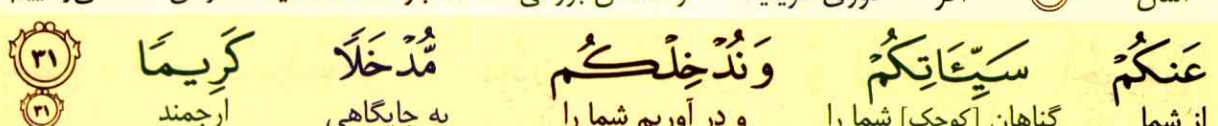 عَنكُمْ سَيِّـَٔاتِكُمْ وَنُدْخِلْكُم مُّدْخَلًا كَرِيمًا ٣١
از شما گناهان [کوچک] شما را و در آوریم شما را به جایگاهی ارجمند ٣١